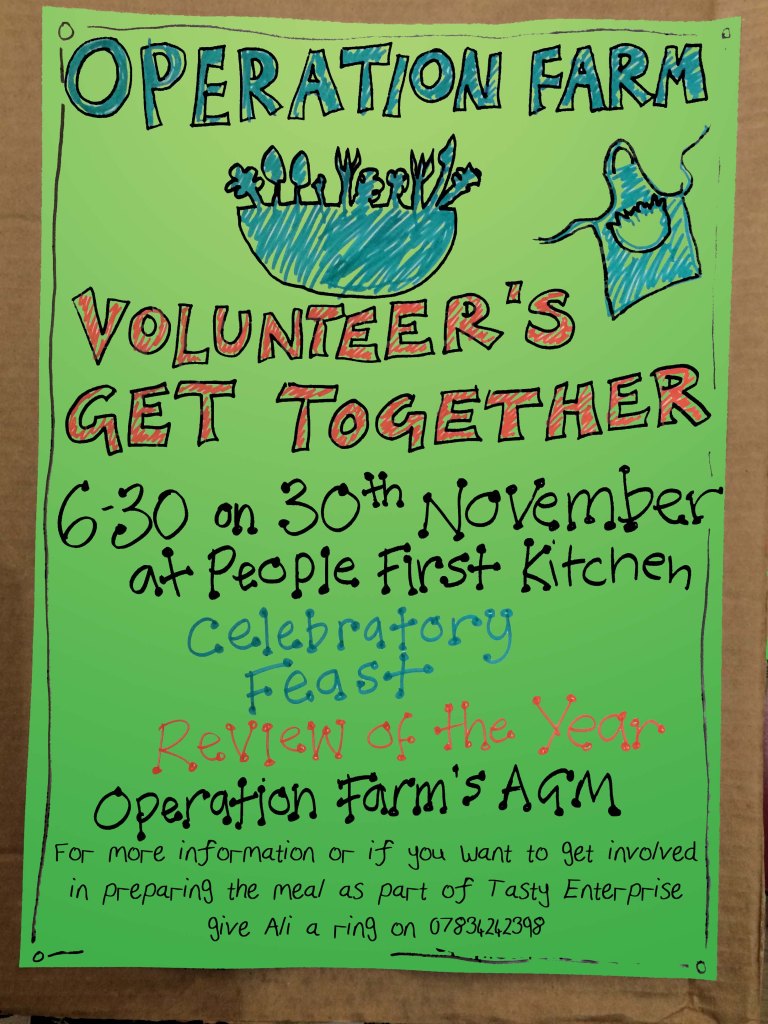 OPERATION FARM
VOLUNTEER'S
GET TOGETHER
6-30 on 30th November
at People First Kitchen
Celebratory
Feast
Review of the Year
Operation Farm's AGM
For more information or if you want to get involved
in preparing the meal as part of Tasty Enterprise
give Ali a ring on 07834242398